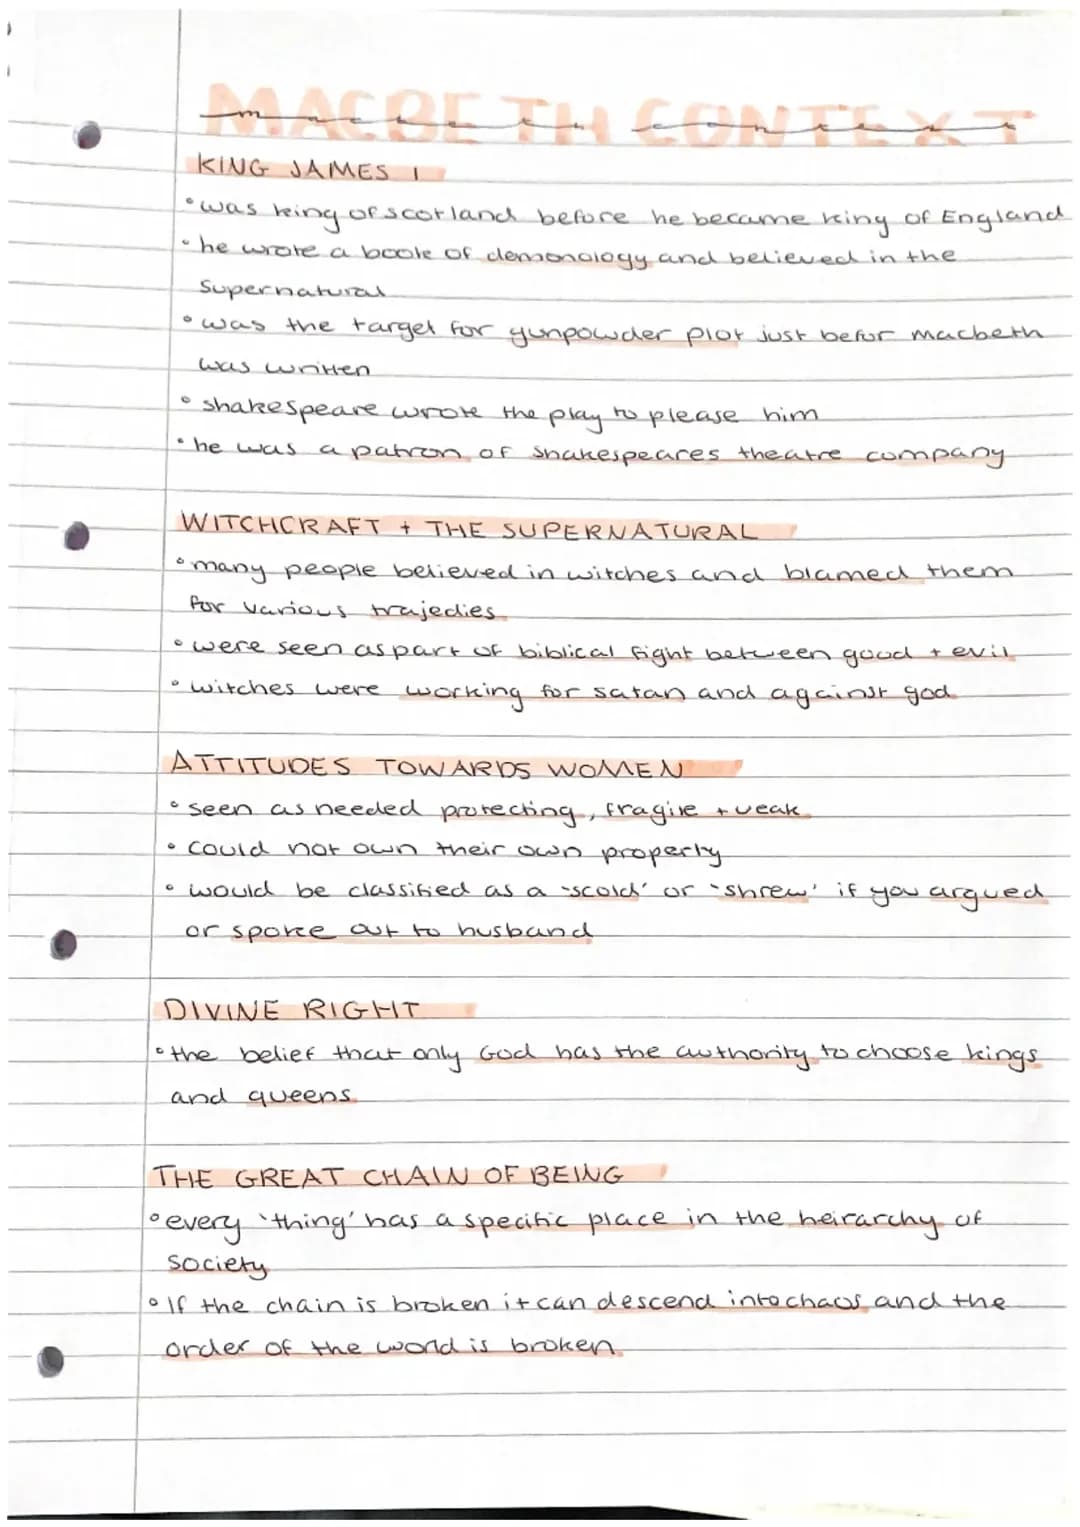 MACBETH CONTEXT
macbeth context
KING JAMES I
• was king of scotland before he became king of England
• he wrote a book of demonology and believed in the
supernatural
• was the target for gunpowder plot just befor macbeth
was written
• shakespeare wrote the play to please him
• he was a patron of shakespeares theatre company
WITCHCRAFT + THE SUPERNATURAL
• many people believed in witches and blamed them
for various trajedies
• were seen as part of biblical fight between good + evil
• witches were working for satan and against god
ATTITUDES TOWARDS WOMEN
• seen as needed protecting, fragile + weak
• could not own their own property
• would be classified as a 'scold' or 'shrew' if you argued
or spoke out to husband
DIVINE RIGHT
• the belief that only God has the authority to choose kings
and queens
THE GREAT CHAIN OF BEING
• every 'thing' has a specific place in the heirarchy of
society
• If the chain is broken it can descend into chaos and the
order of the world is broken.